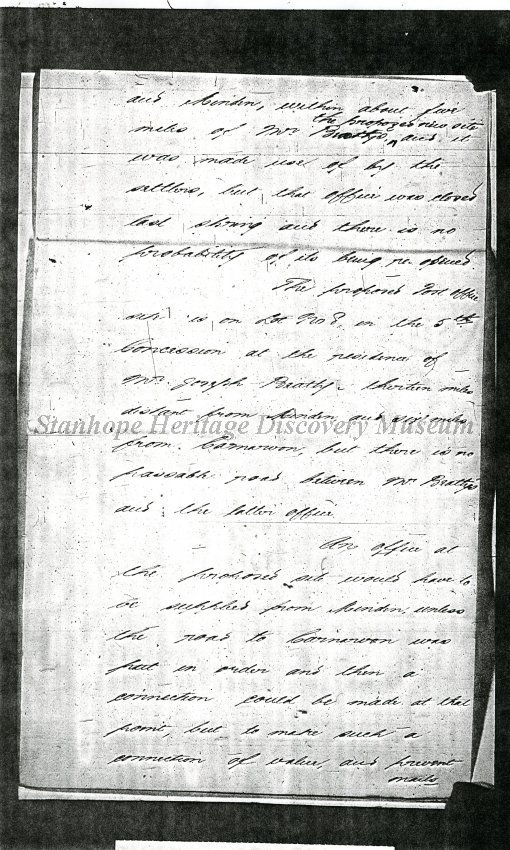 and Minden, within about four
the proposed new site
miles of Mr Beatty's and it
was made use of by the
settlers, but that office was closed
last spring and there is no
probability of its being re opened
The proposed Post Office
site is on Lot No 8, in the 5th
Concession at the residence of
Mr. Joseph Beatty - thirteen miles
distant from Minden and six miles
Stanhope Heritage Discovery Museum
from Carnarvon, but there is no
passable road between Mr Beatty's
and the latter office
An office at
the proposed site would have to
be supplied from Minden, unless
the road to Carnarvon was
put in order and then a
connection could be made at that
point, but to make such a
connection of value, and prevent
mails